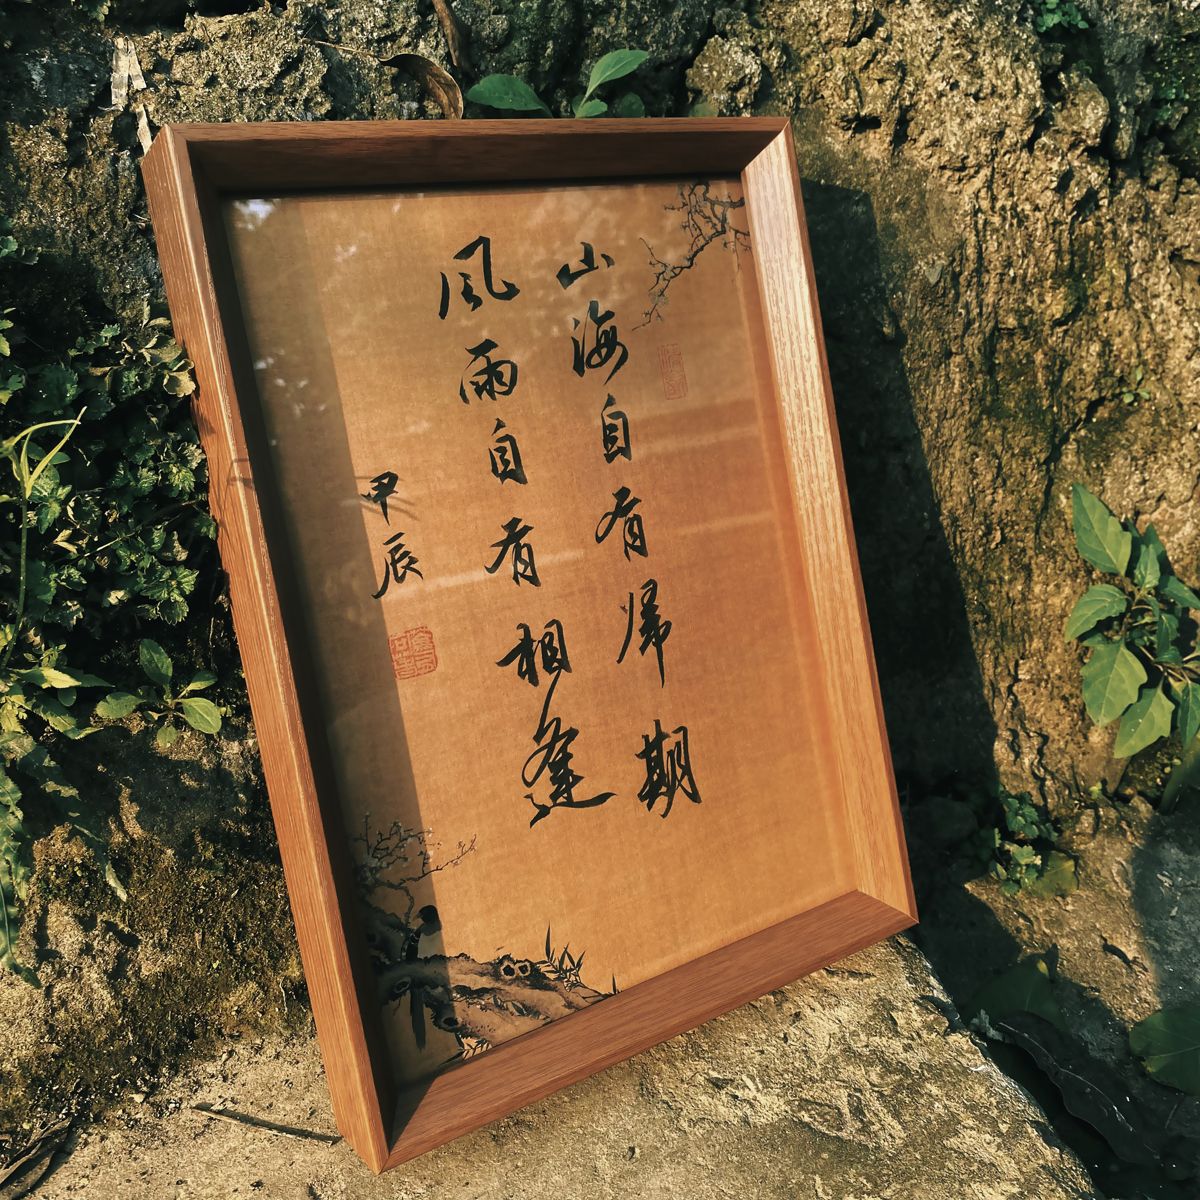 山海自有歸期
風雨自有相逢
甲辰